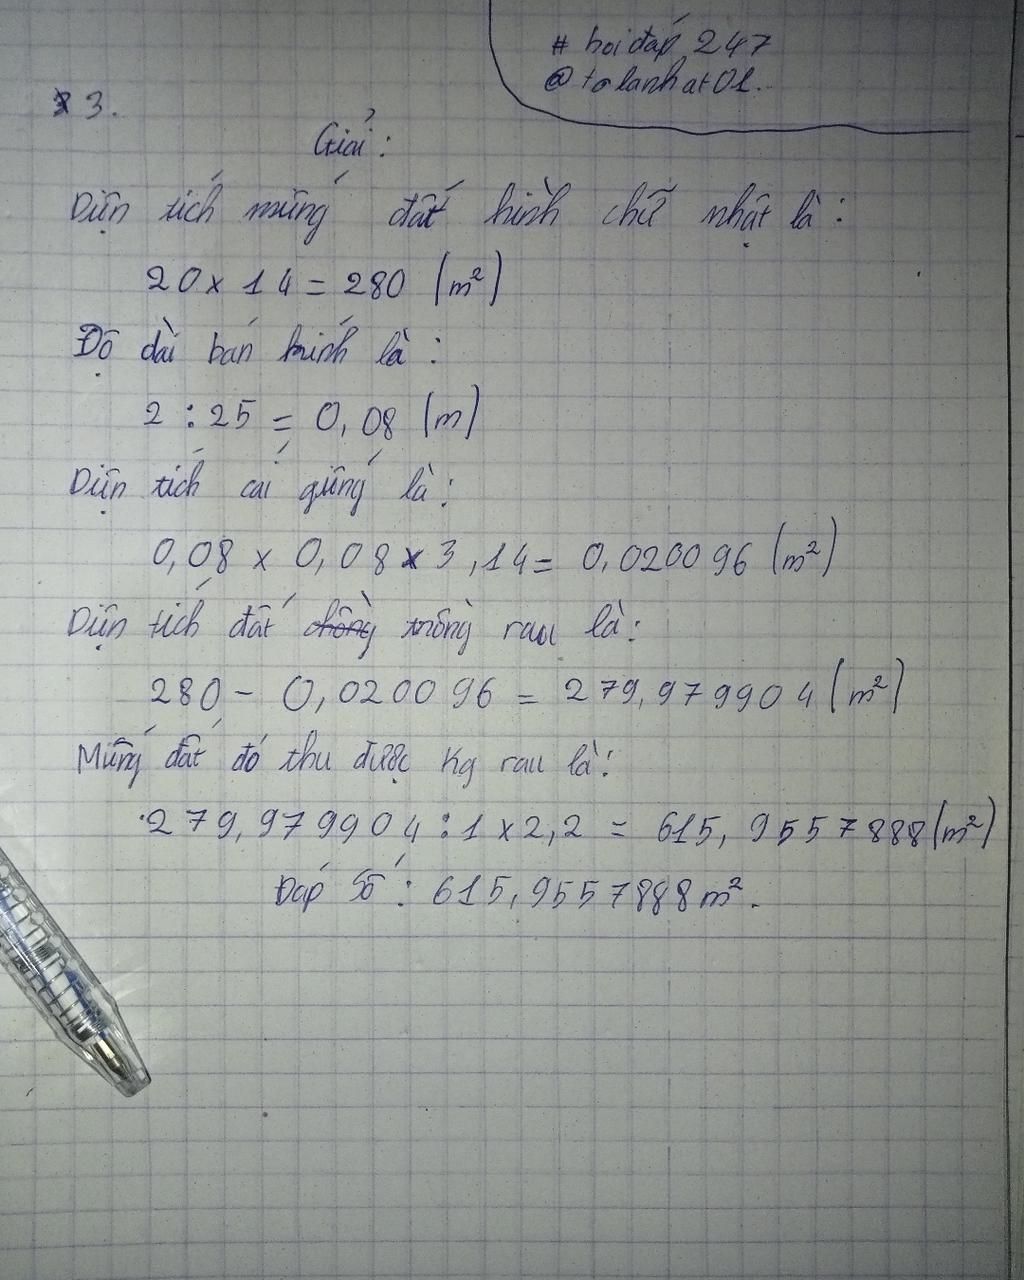 # hoi đáp 247
@ tolanhat01.
3.
Giải:
Diện tích mứng đất hình chữ nhật là:
20 x 14 = 280 (m²)
Độ dài bán kính là:
2 : 25 = 0,08 (m)
Diện tích cái giếng là:
0,08 x 0,08 x 3,14 = 0,020096 (m²)
Diện tích đất chồng trồng rau là:
280 - 0,020096 = 279,979904 (m²)
Mứng đất đó thu được kg rau là:
279,979904 : 1 x 2,2 = 615,9557888 (m²)
Đáp Số: 615,9557888 m².